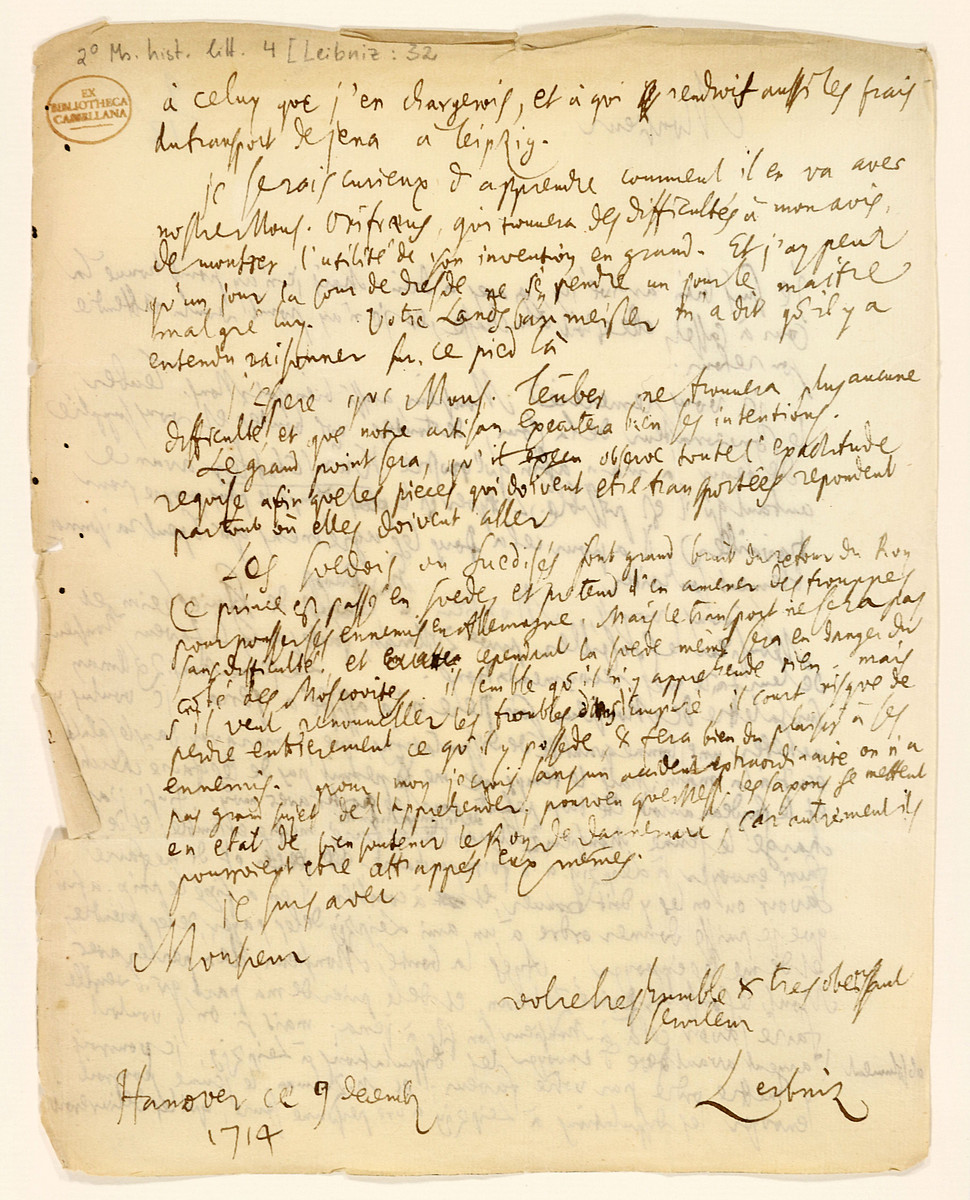 2° Ms. hist. litt. 4 [Leibniz: 32
EX
BIBLIOTHECA
CASSELLANA
à celuy que j'en chargerois, et à qui rendroit aussi les frais
du transport de jena à Leipzig.
je serois curieux d'apprendre comment il en va avec
nostre Mons. Orifræus, qui trouvera des difficultés à mon avis,
de monstrer l'utilité de son invention en grand. Et j'ay peur
qu'un jour la Cour de dresde ne s'en pende un jour le maitre
malgré luy. Votre Landsbaumeister m'a dit qu'il y a
entendu raisonner sur ce pied là
j'espere que Mons. Teuber ne trouvera plus aucune
difficulté et que notre artisan executera bien ses intentions.
Le grand point sera, qu'il observe toute l'exactitude
requise afin que les pieces qui doivent etre transportées repondent
partout où elles doivent aller
Les Suedois ou Suedisés font grand bruit du retour du Roy
Ce prince est passé en Suede, et pretend d'en amener des trouppes
pour pousser ses ennemis en Allemagne. Mais le transport ne sera pas
sans difficulté, et cependant la Suede même sera en danger du
coté des Moscovites. il semble qu'il n'y apprehende rien. mais
s'il veut renouveller les troubles dans l'Empire il court risque de
perdre entierement ce qu'il y possede, & fera bien du plaisir à ses
ennemis. pour moy je crois sans un accident extraordinaire on n'a
pas grand sujet de l'apprehender; pourveu que les Saxons se mettent
en etat de bien soutenir le Roy de Dannemarc, car autrement ils
pourroient etre attrappés eux mêmes.
je suis avec
Monsieur
votre tres humble & tres obeissant
serviteur
Leibniz
Hanover ce 9 decembr
1714